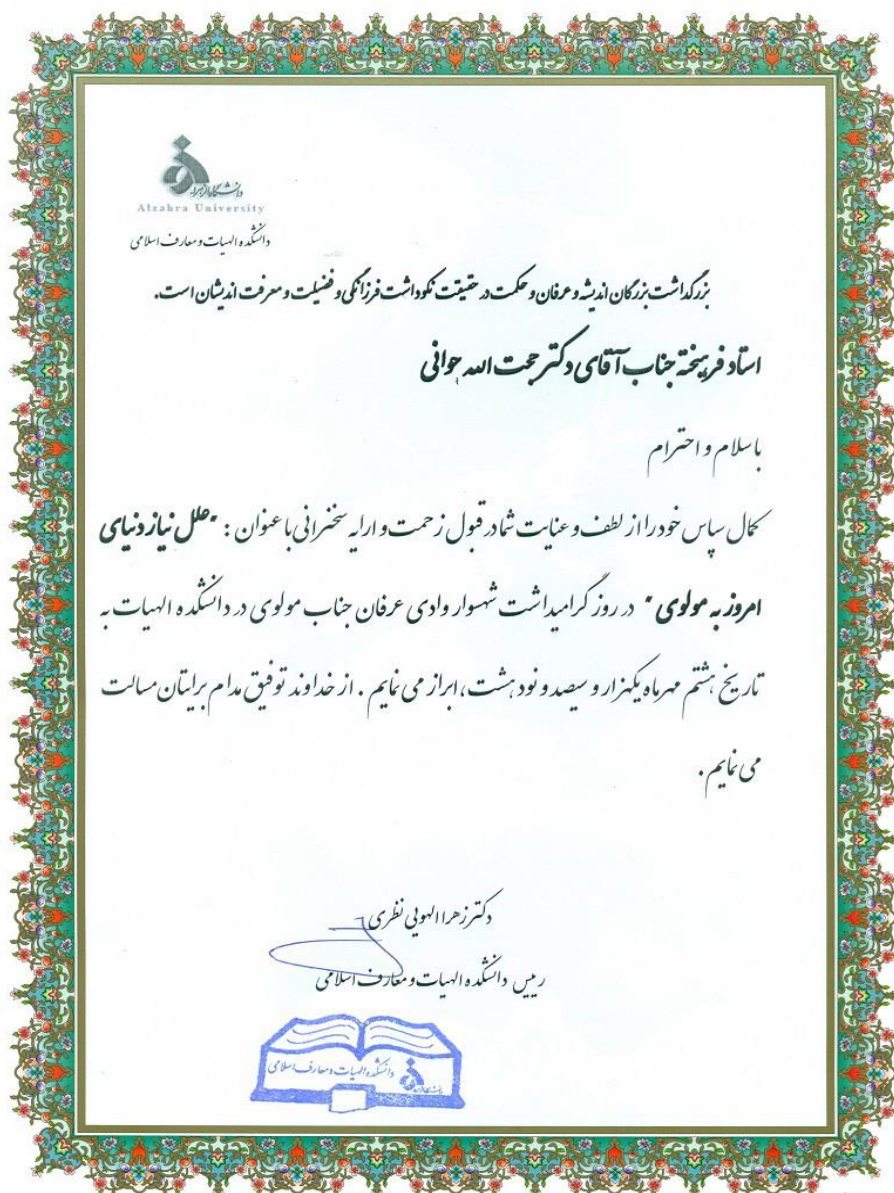 دانشگاه الزهرا
Alzahra University
دانشکده الهیات و معارف اسلامی
بزرگداشت بزرگان اندیشه و عرفان و حکمت در حقیقت نکوداشت فرزانگی و فضیلت و معرفت اندیشان است.
استاد فریخته جناب آقای دکتر حجت الله جوانی
با سلام و احترام
کمال سپاس خود را از لطف و عنایت شما در قبول زحمت و ارایه سخنرانی با عنوان : "علل نیاز دنیای
امروز به مولوی" در روز گرامیداشت شهسوار وادی عرفان جناب مولوی در دانشکده الهیات به
تاریخ هشتم مهرماه یکهزار و سیصد و نود هشت، ابراز می نمایم . از خداوند توفیق مدام برایتان مسالت
می نمایم.
دکتر زهرا الهویی نظری
رییس دانشکده الهیات و معارف اسلامی
دانشکده الهیات و معارف اسلامی